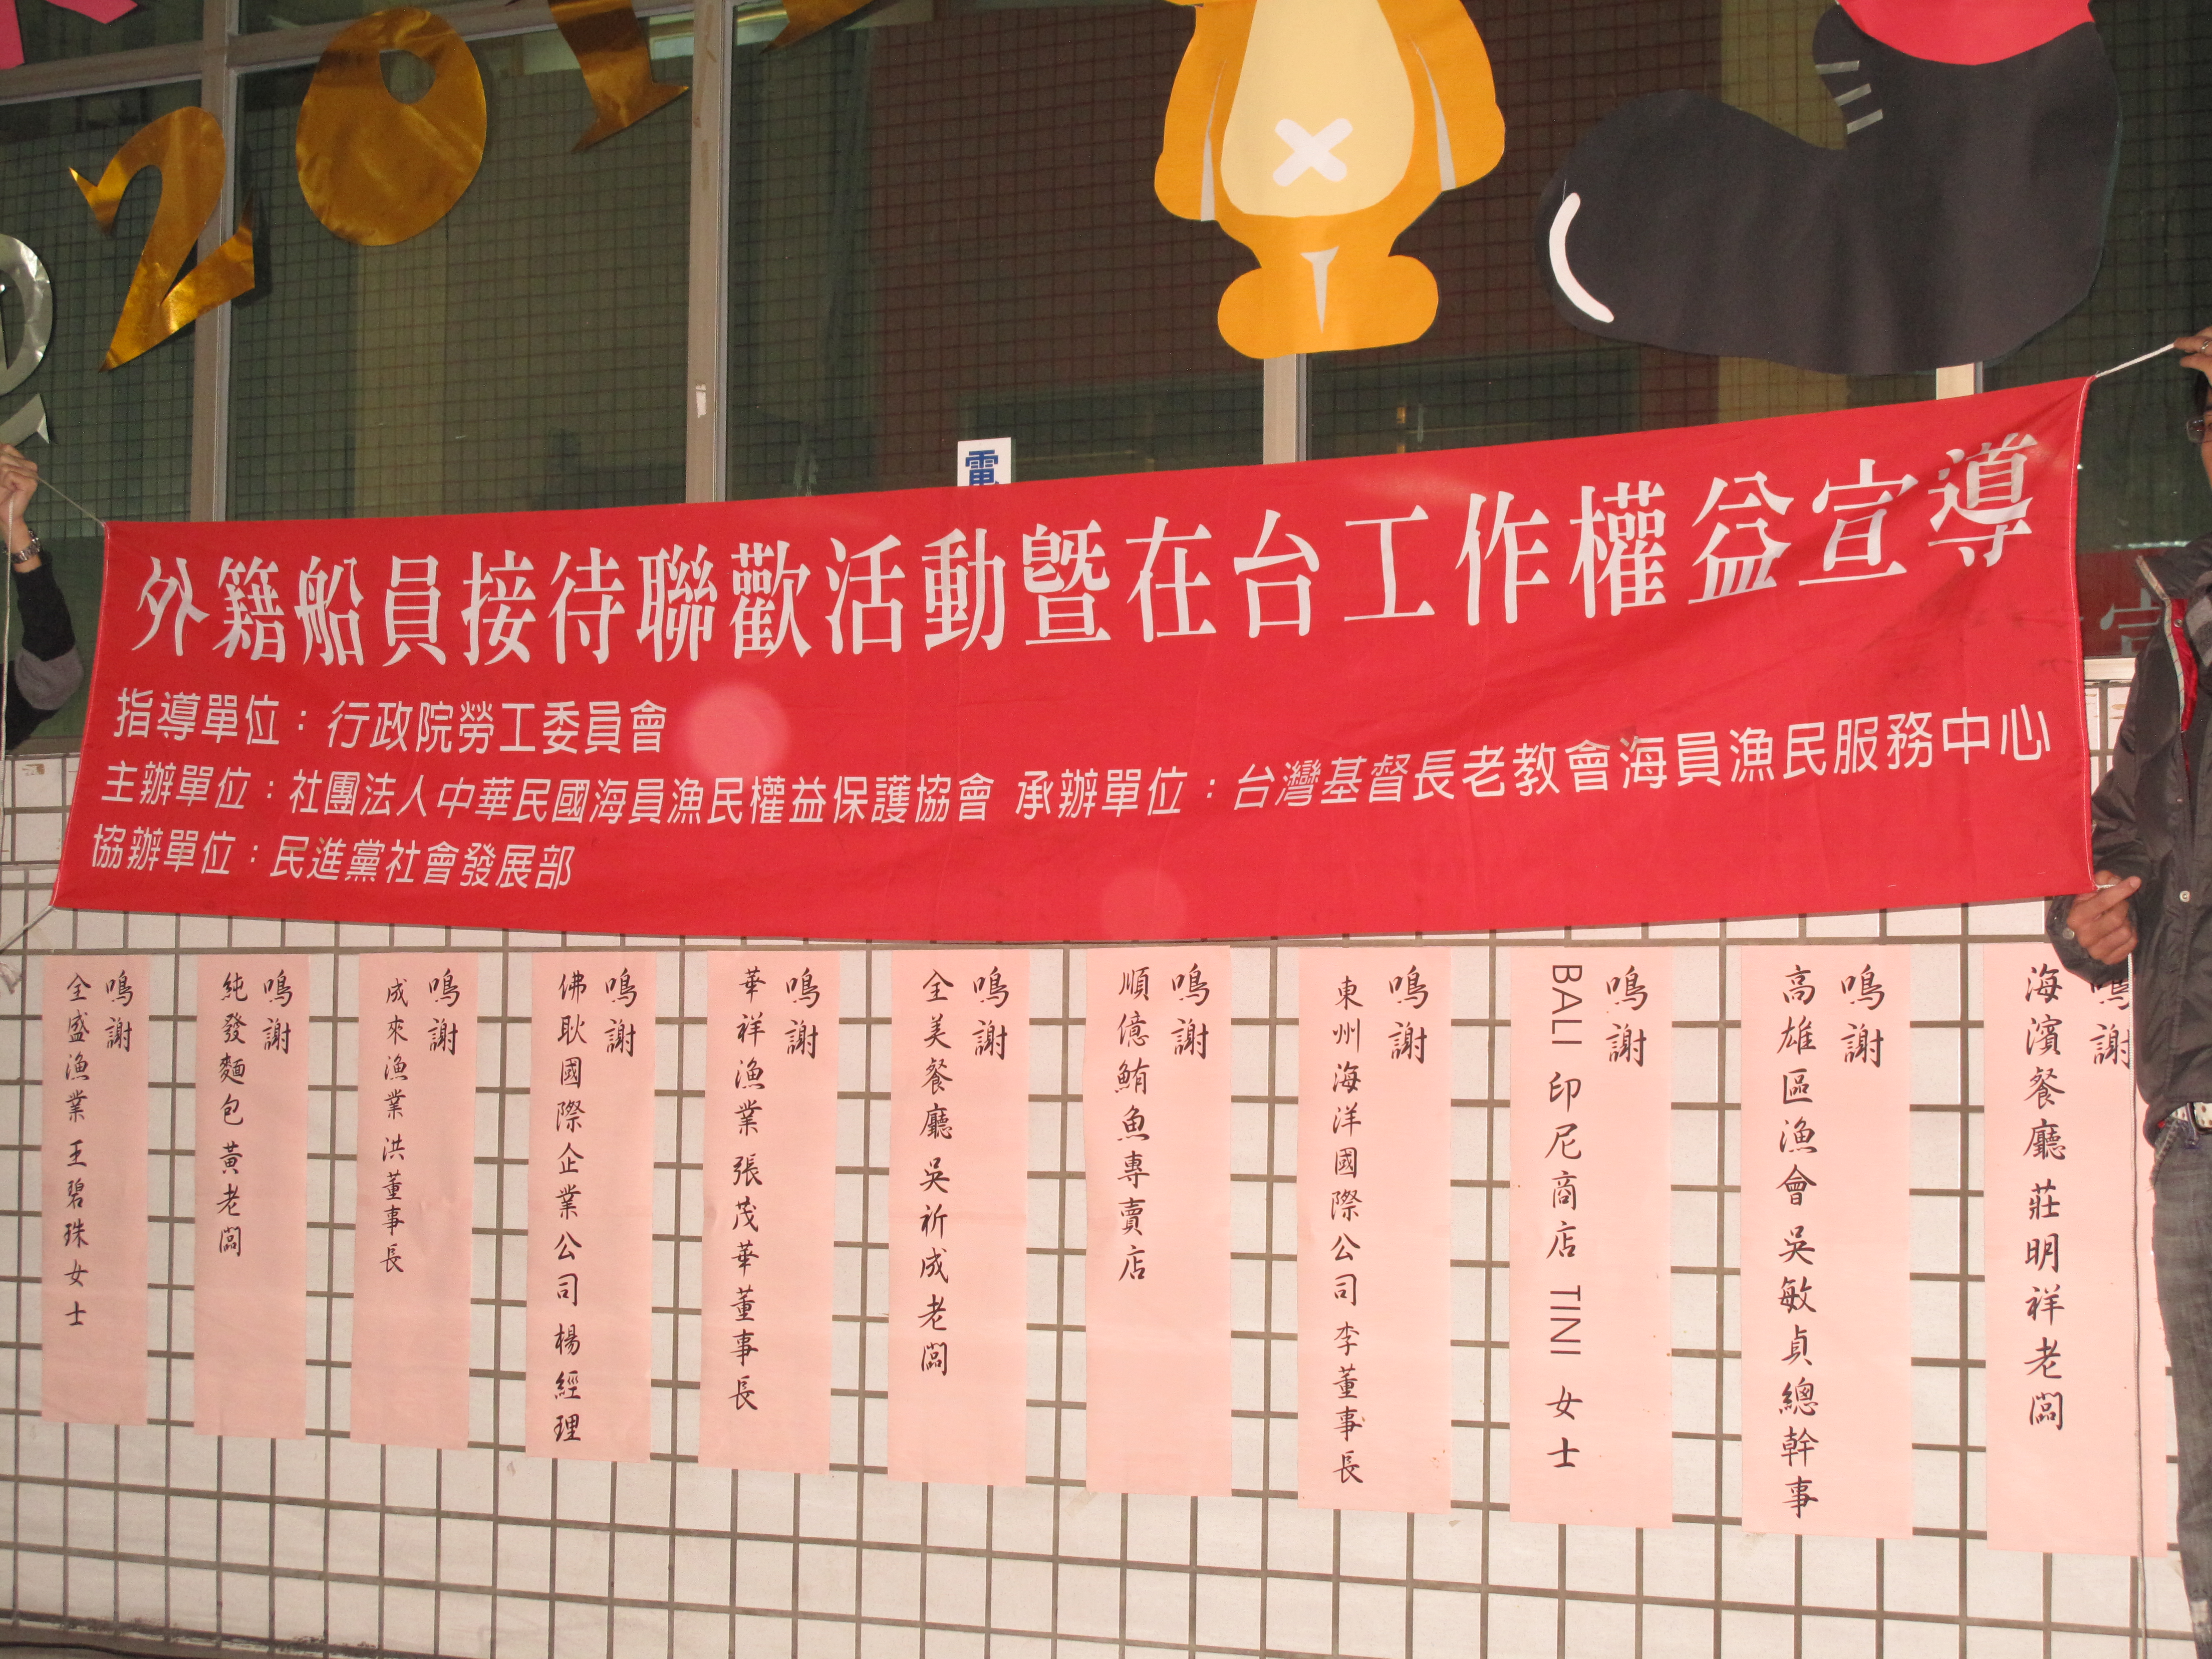 201
電
外籍船員接待聯歡活動暨在台工作權益宣導
指導單位：行政院勞工委員會
主辦單位：社團法人中華民國海員漁民權益保護協會 承辦單位：台灣基督長老教會海員漁民服務中心
協辦單位：民進黨社會發展部
鳴謝
海濱餐廳 莊明祥老闆
鳴謝
高雄區漁會 吳敏貞總幹事
鳴謝
BALI 印尼商店 TINI 女士
鳴謝
東州海洋國際公司 李董事長
鳴謝
順億鮪魚專賣店
鳴謝
全美餐廳 吳祈成老闆
鳴謝
華祥漁業 張茂華董事長
鳴謝
佛耿國際企業公司 楊經理
鳴謝
成來漁業 洪董事長
鳴謝
純發麵包 黃老闆
鳴謝
全盛漁業 王碧珠女士